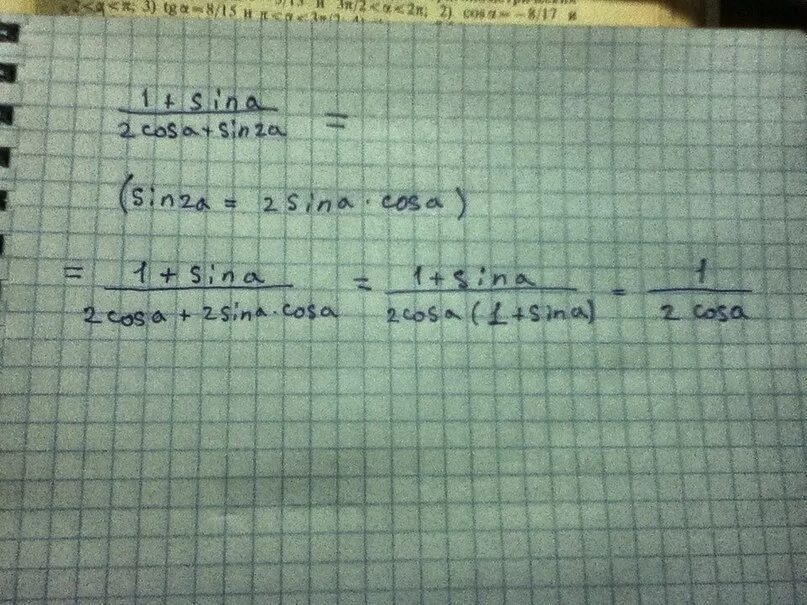 π/2<α<π; 3) tgα=8/15 и 3π/2<α<2π; 2) cosα=-8/17 и
π<α<3π/2
1 + sina
2cosa+sin2a =
(sin2a = 2sina · cosa)
= 1+sina / 2cosa + 2sina·cosa = 1+sina / 2cosa(1+sina) = 1 / 2cosa